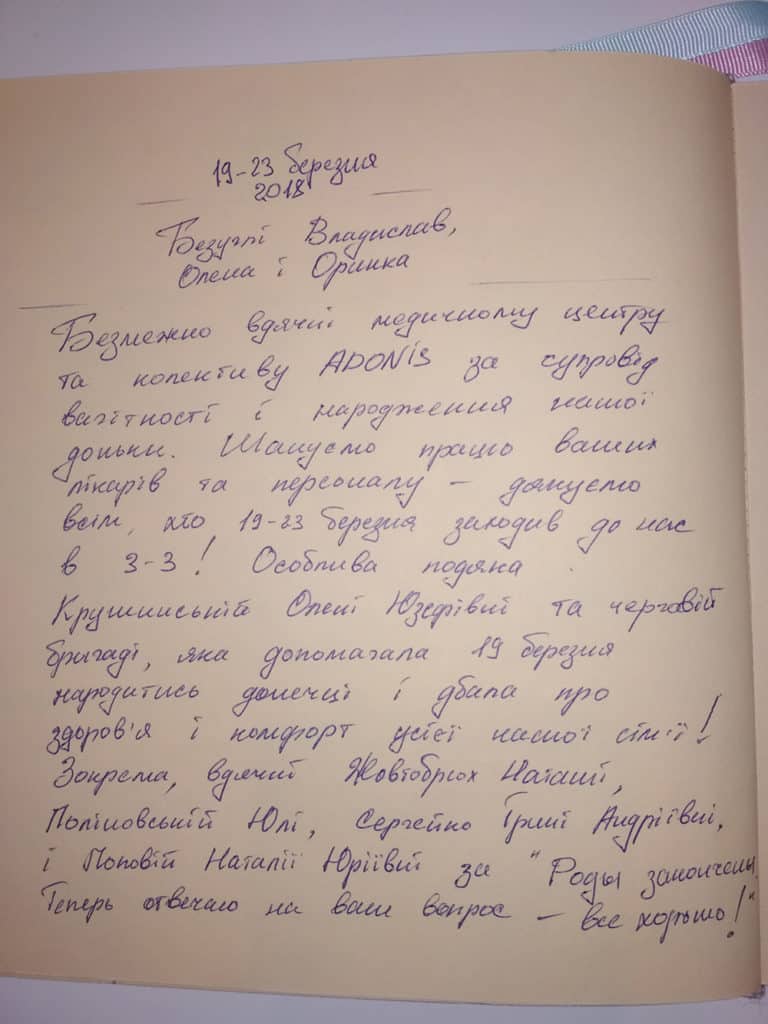 19-23 березня
2018
Безуглі Владислав,
Олена і Оринка
Безмежно вдячні медичному центру
та колективу ADONIS за супровід
вагітності і народження нашої
доньки. Шануємо працю ваших
лікарів та персоналу – дякуємо
всім, хто 19-23 березня заходив до нас
в 3-3! Особлива подяка
Крушинській Олені Юзефівні та черговій
бригаді, яка допомагала 19 березня
народитись донечці і дбала про
здоров'я і комфорт усієї нашої сім'ї!
Зокрема, вдячні Жовтобрюх Наталії,
Поліновській Юлі, Сергейко Ірині Андріївні,
і Поповій Наталії Юріївні за "Роды закончены.
Теперь отвечаю на ваш вопрос – все хорошо!"